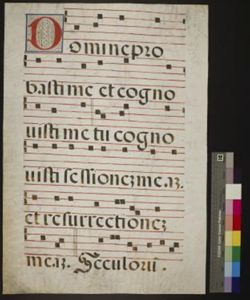 Domine pro
basti me et cogno
uisti me tu cogno
uisti sessionez me.az.
et resurrectionez
me.az. Seculorū.